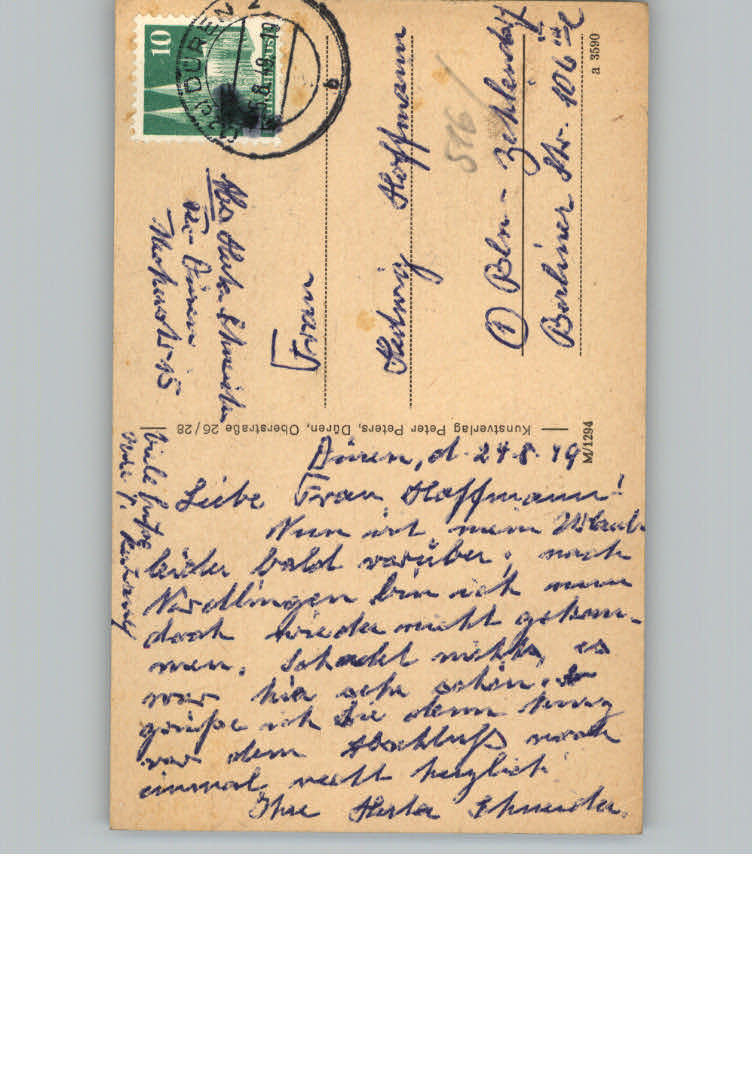 10
DÜREN
.8.49.-19
b
Abs. Herta Schneider
Düren
15
Frau
Hedwig Hoffmann
516/
(1) Bln - Zehlendorf
Berliner Str. 106
a 3590
Kunstverlag Peter Peters, Düren, Oberstraße 26/28
M/1294
Düren, d. 24.8.49
Liebe Frau Hoffmann!
Nun ist mein Urlaub
leider bald vorüber; nach
Nördlingen bin ich nun
doch wieder nicht gekom-
men. Schadet nichts, es
war hier sehr schön. So
grüße ich Sie denn kurz
vor dem Abschluß noch
einmal recht herzlich
Ihre Herta Schneider.
Viele Grüße